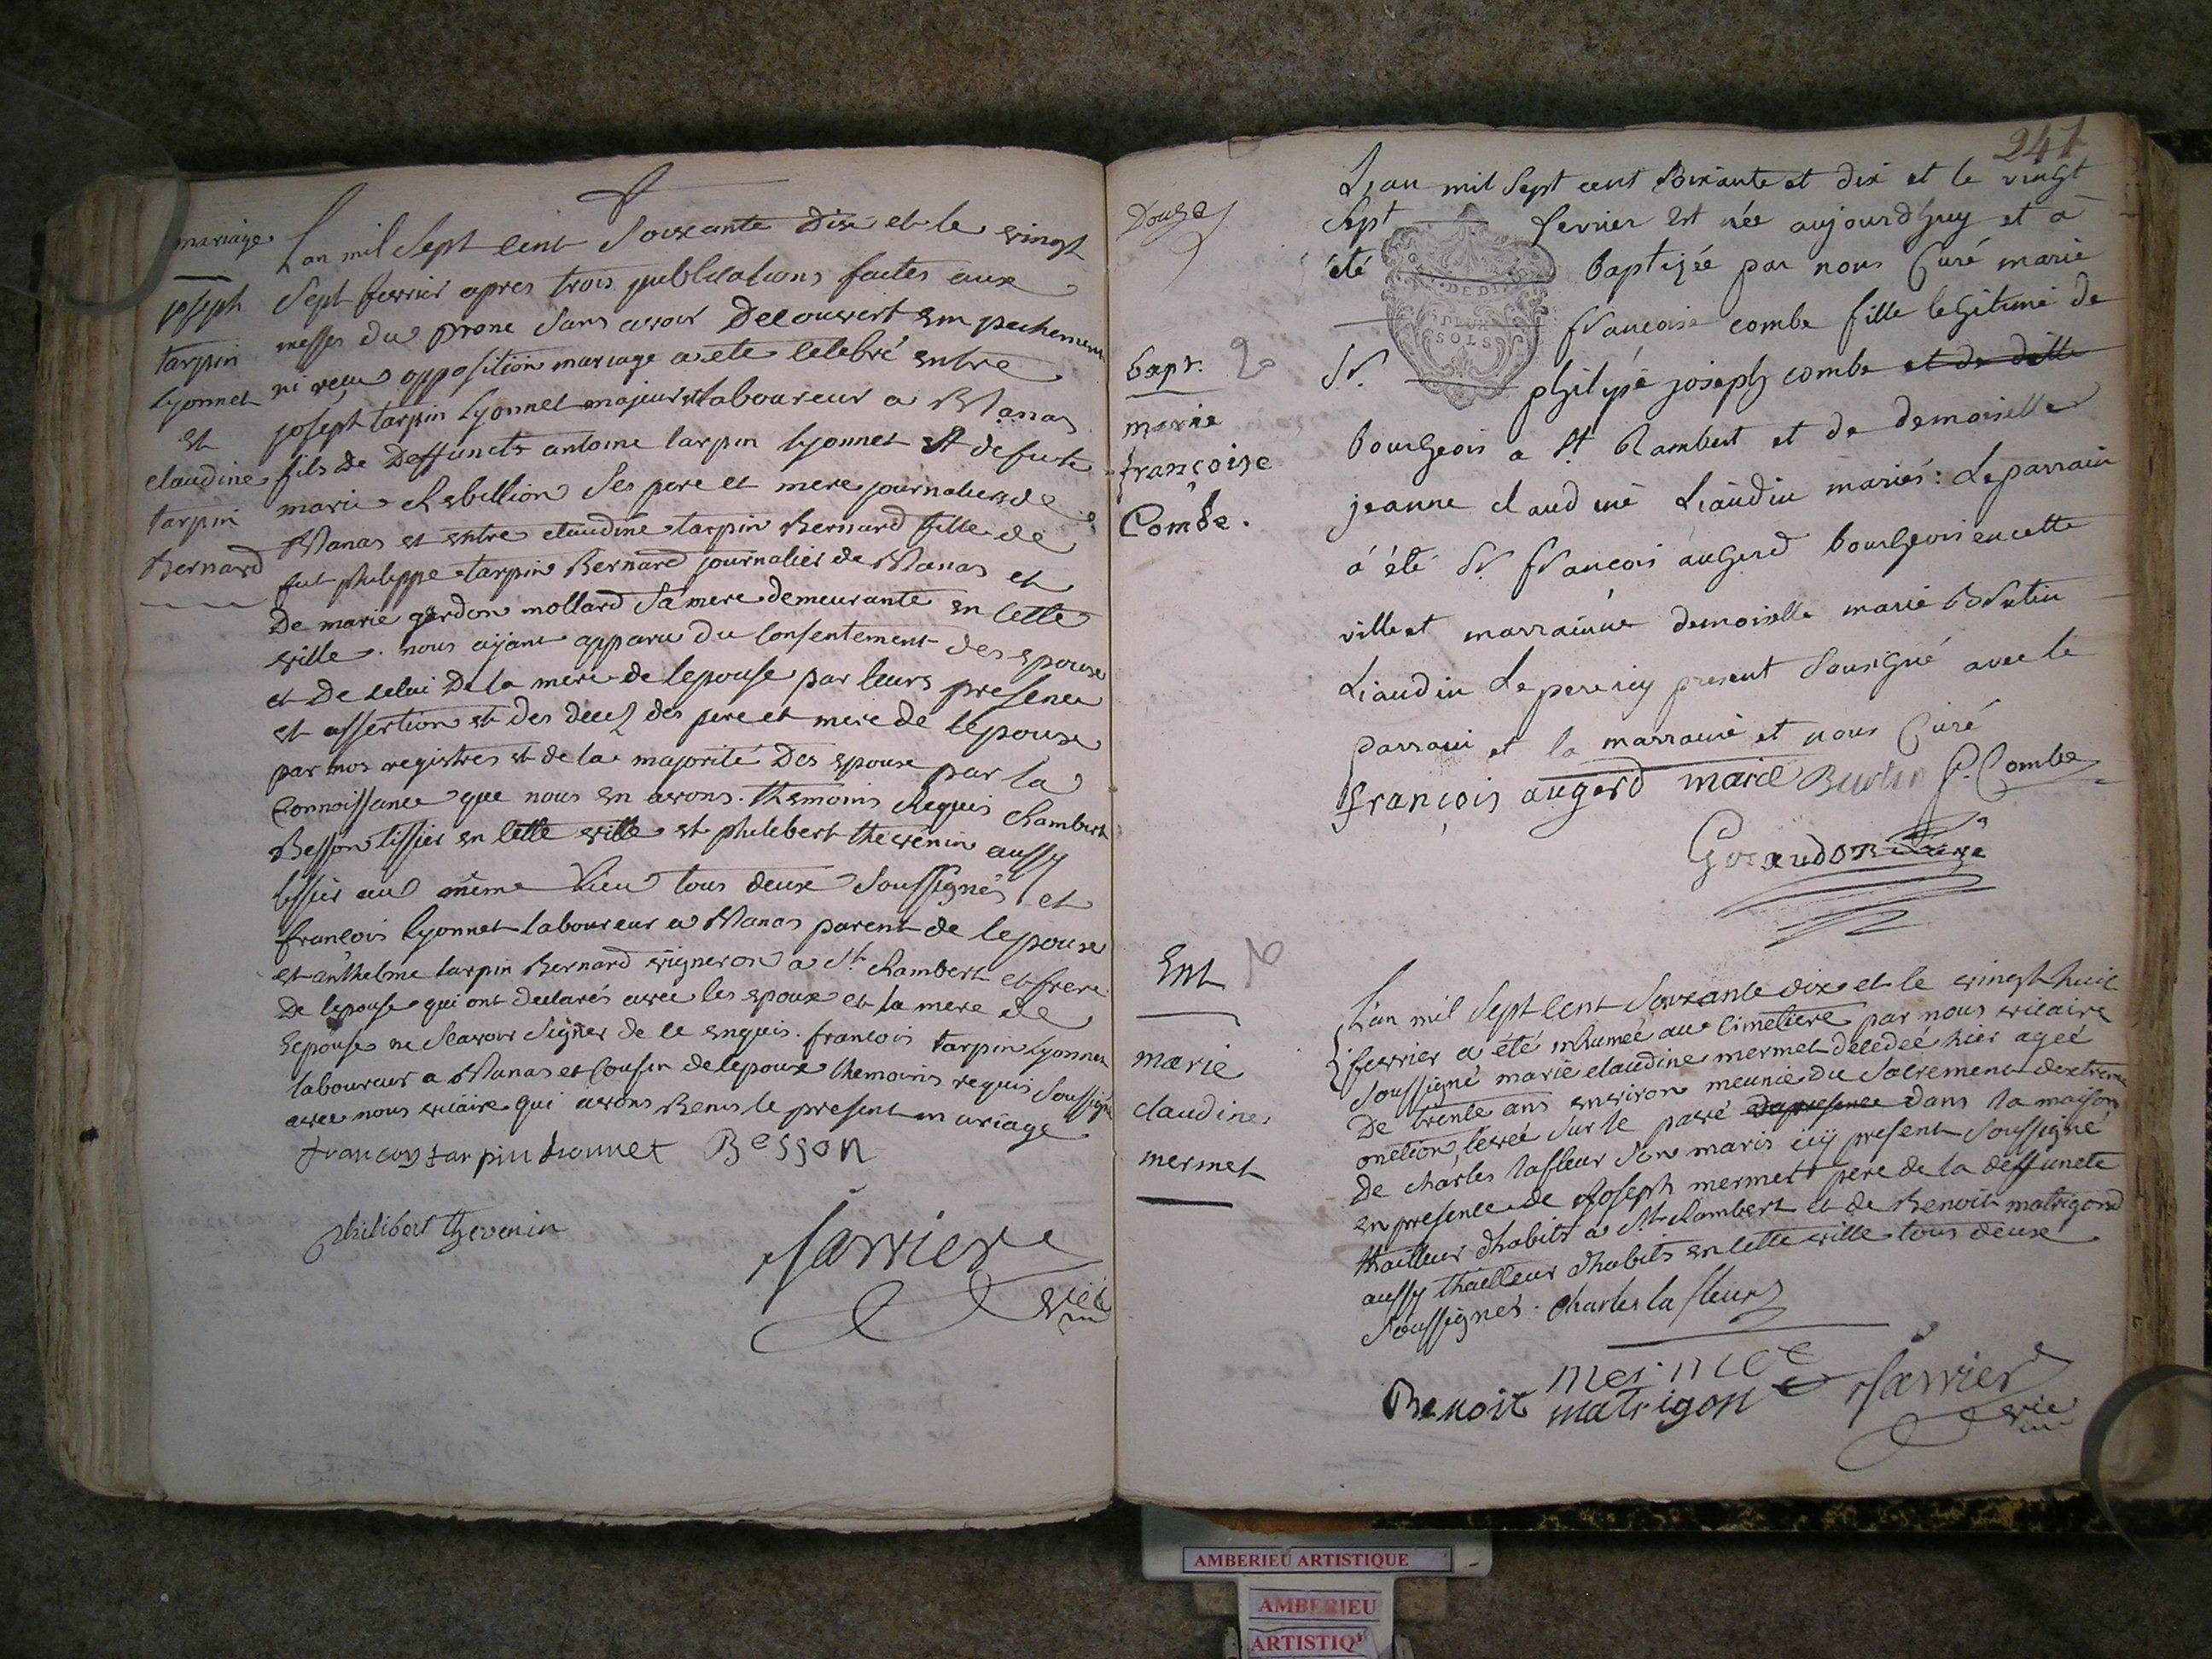 mariage
joseph
tarpin
Lyonnet
et
claudine
tarpin
Bernard
L'an mil Sept cent Soixante Dix et le vingt
Sept fevrier apres trois publications faites aux
messes du prone Sans avoir Decouvert empechement
ni reçu opposition mariage a ete celebré entre
joseph tarpin Lyonnet majeur et laboureur a Vanas
fils de Deffuncts antoine tarpin Lyonnet et
marie Rebillion Ses pere et mere journaliers de
Vanas et entre claudine tarpin Bernard fille de
fut philippe tarpin Bernard journalier de Vanas et
De marie gardon mollard Sa mere demeurante en cette
ville. nous ayant apparu du Consentement des epoux
et De celui De la mere de lepouse par leurs presence
et assertion et des deces des pere et mere de lepoux
par nos registres et de la majorité Des epoux par la
Connoissance que nous en avons. themoins Requis Rambert
Besson tissier en cette ville et philebert thevenin aussy
tissier au même Lieu tous deux Soussignés et
francois Lyonnet laboureur a Vanas parent de lepoux
et anthelme tarpin Bernard vigneron a St Rambert et frere
De lepouse qui ont declarés avec les epoux et la mere de
Lepouse ne Scavoir Signer de ce enquis. francois tarpin Lyonnet
laboureur a Vanas et Cousin de lepoux themoins requis Soussigné
avec nous vicaire qui avons Benis le present mariage
francoy tarpin lionnet Besson
philibert thevenin
Jarrier
vic
241
Douze
bapt.
marie
françoise
Combe.
L'an mil Sept cent Soixante et dix et le vingt
Sept fevrier est née aujourdhuy et a
été baptizée par nous Curé marie
GEN. DE DIJON
DEUX
SOLS
francoise combe fille legitime de
Sr. philipe joseph combe et de dlle
bourgeois a St Rambert et de demoiselle
jeanne claudine Liaudin mariés: Le parrain
à été Sr. francois augerd bourgeois en cette
ville et marrainne demoiselle marie Burtin
Liaudin Le pere icy present Sousigné avec le
parrain et la marraine et nous Curé
françois augerd marie Burtin P. Combe
Giraudon Curé
Ent
marie
claudine
mermet
L'an mil Sept cent Soixante dix et le vingt huit
fevrier a été inhumée au Cimetiere par nous vicaire
Soussigné marie claudine mermet decedée hier ageé
De trente ans environ meunie du Sacrement dextreme
onction, levée Sur le pavé dans la maison
De charles lafleur Son maris icy present Soussigné
en presence de Joseph mermet pere de la deffuncte
thailleur dhabits a St Rambert et de Benoit matrigond
aussy thailleur dhabits en cette ville tous deux
Soussignés. charles la fleur
mermet
Benoit matrigon Jarrier
vic
AMBERIEU ARTISTIQUE
AMBERIEU
ARTISTIQ